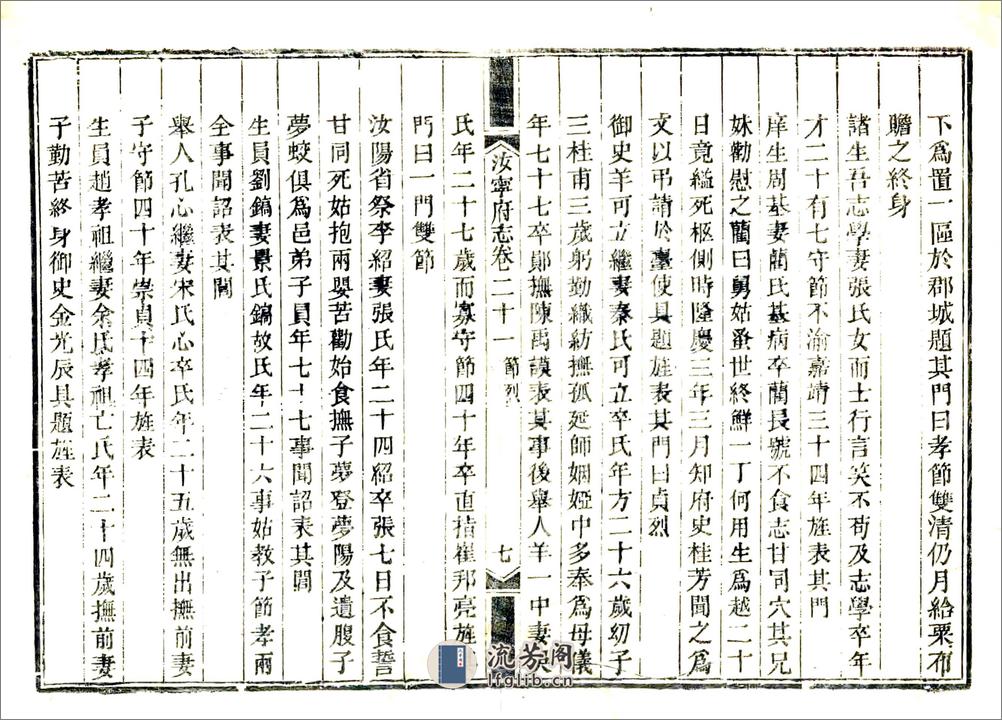 下爲置一區於郡城題其門曰孝節雙清仍月給粟布
贍之終身
諸生吾志學妻張氏女而士行言笑不苟及志學卒年
才二十有七守節不渝嘉靖三十四年旌表其門
庠生周基妻藺氏基病卒藺長號不食志甘同穴其兄
妹勸慰之藺曰舅姑蚤世終鮮一丁何用生爲越二十
日竟縊死柩側時隆慶三年三月知府史桂芳聞之爲
文以弔請於臺使具題旌表其門曰貞烈
御史羊可立繼妻秦氏可立卒氏年方二十六歲幼子
三桂甫三歲躬勤織紡撫孤延師姻婭中多奉爲母儀
年七十七卒鄖撫陳禹謨表其事後舉人羊一中妻
汝寧府志卷二十一 節烈 七
氏年二十七歲而寡守節四十年卒直指崔邦亮旌
門曰一門雙節
汝陽省祭李紹妻張氏年二十四紹卒張七日不食誓
甘同死姑抱兩嬰苦勸始食撫子夢登夢陽及遺腹子
夢蛟俱爲邑弟子員年七十七事聞詔表其閭
生員劉鎬妻景氏鎬故氏年二十六事姑教子節孝兩
全事聞詔表其閭
舉人孔心繼妻宋氏心卒氏年二十五歲無出撫前妻
子守節四十年崇貞十四年旌表
生員趙孝祖繼妻余氏孝祖亡氏年二十四歲撫前妻
子勤苦終身御史金光辰具題旌表
流芳阁
lfglib.cn